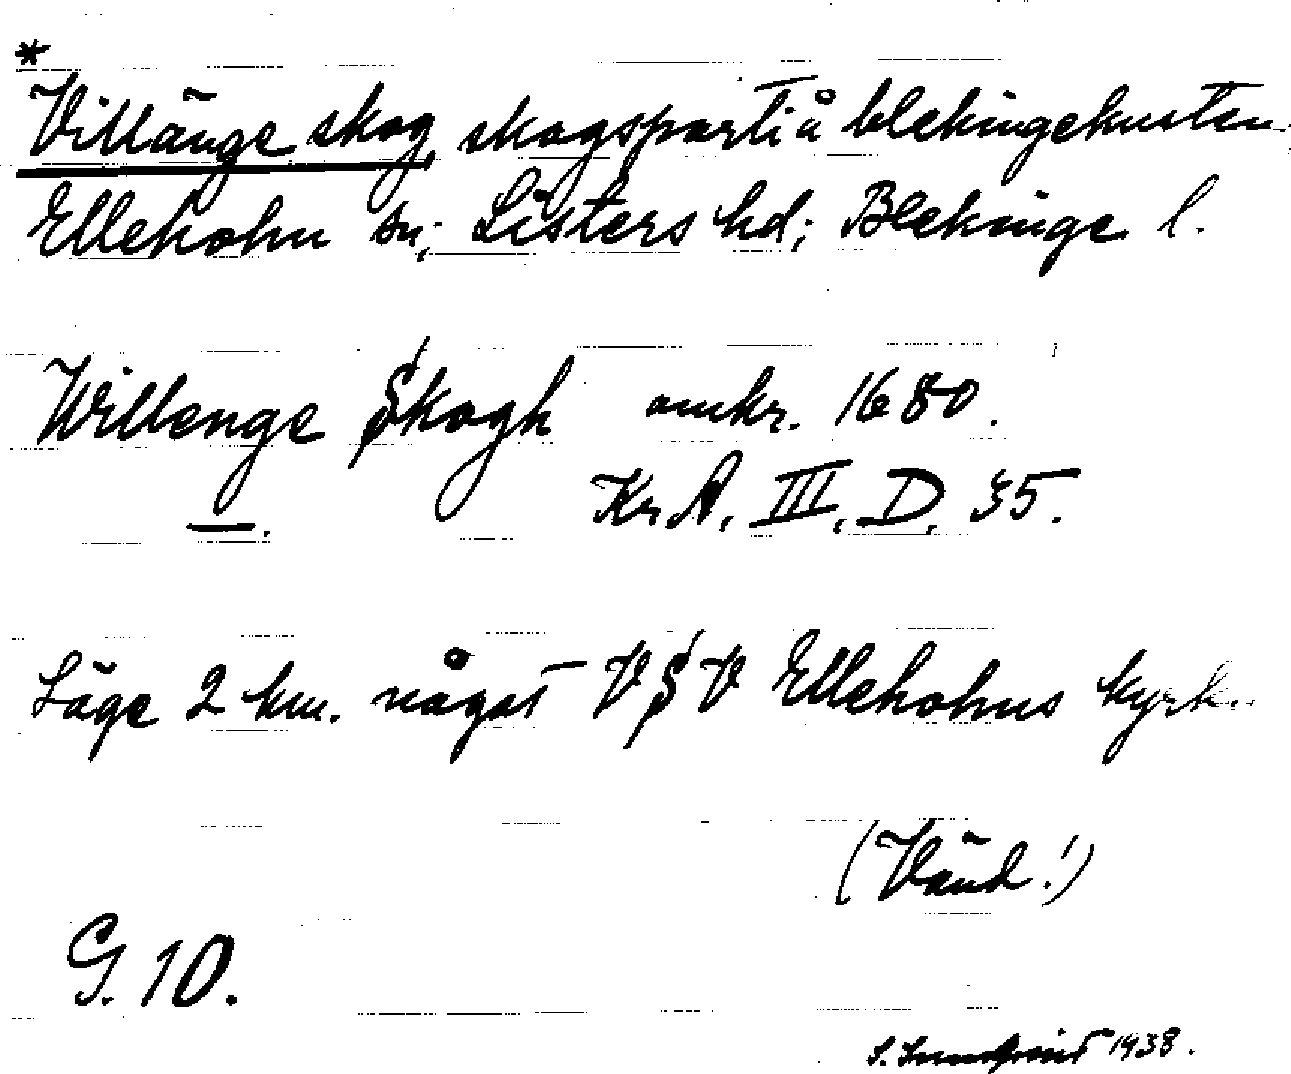 *
Villänge skog, skogsparti å blekingekusten.
Ellehohn sn; Listers hd; Blekinge l.
Willenge Skogh omkr. 1680.
—. Kr.A. III. D. 35.
Läge 2 km. något VSV Ellehohns kyrk..
(Vänd!)
G. 10.
1938.